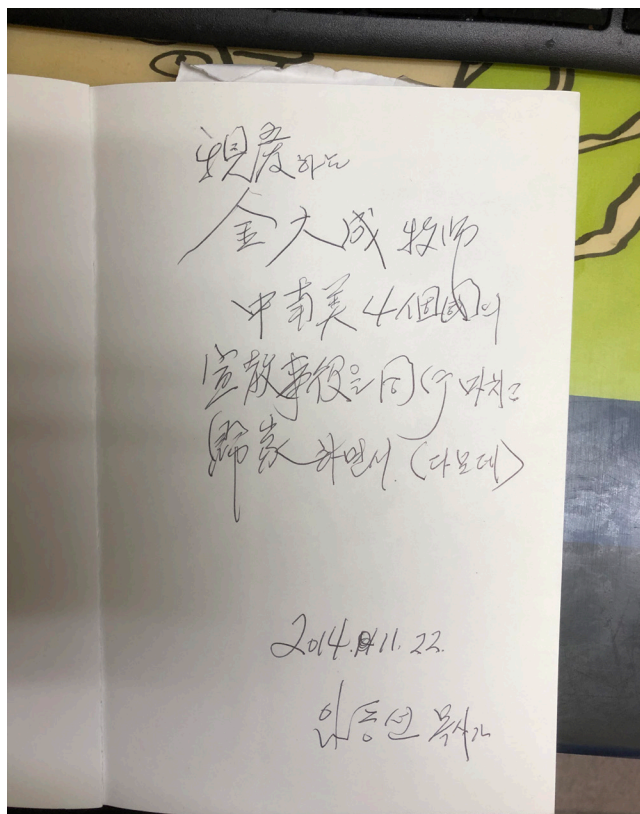 親愛하는
金大成 牧師
中南美 4個國의
宣敎事役을 同行 마치고
歸家 하면서. (다모데)
2014. 11. 22.
임동선 목사가